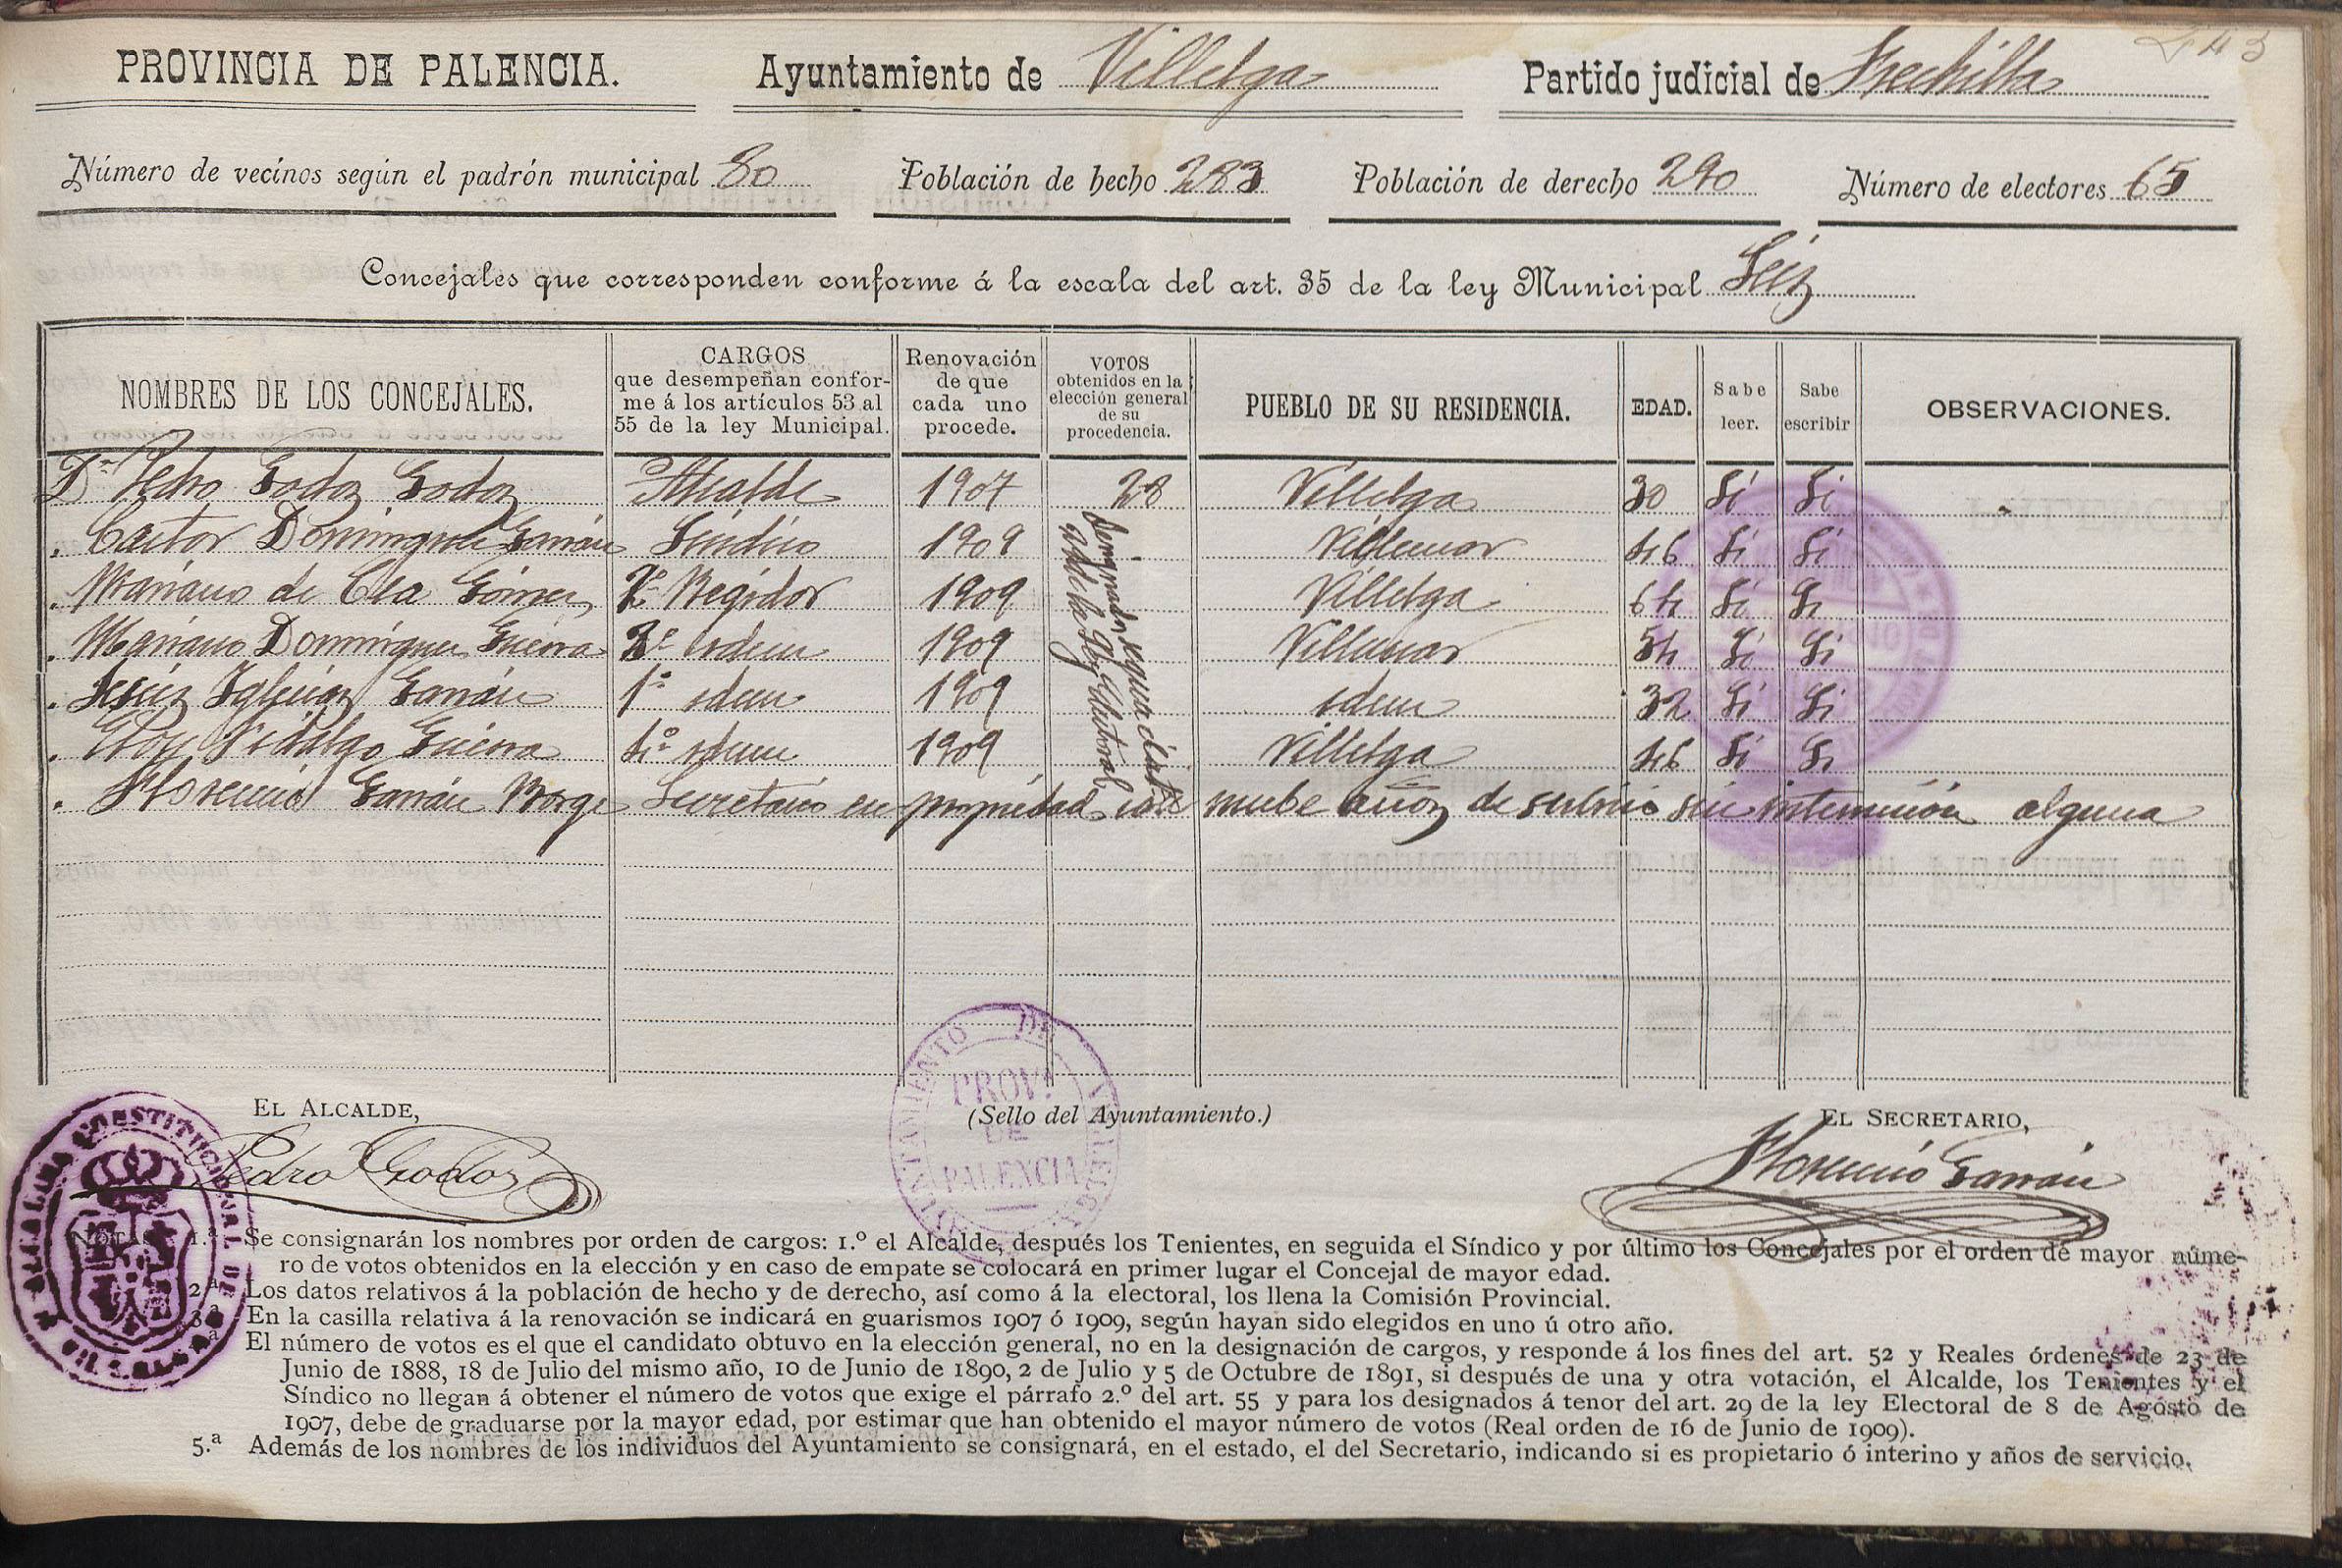 PROVINCIA DE PALENCIA. Ayuntamiento de Villelga Partido judicial de Frechilla
Número de vecinos según el padrón municipal 80 Población de hecho 283 Población de derecho 290 Número de electores 65
Concejales que corresponden conforme á la escala del art. 35 de la ley Municipal Seis
NOMBRES DE LOS CONCEJALES. CARGOS que desempeñan conforme á los artículos 53 al 55 de la ley Municipal. Renovación de que cada uno procede. VOTOS obtenidos en la elección general de su procedencia. PUEBLO DE SU RESIDENCIA. EDAD. Sabe leer. Sabe escribir OBSERVACIONES.
Dn Pedro Godos Godos Alcalde 1907 28 Villelga 30 Sí Sí
. Castor Domínguez Garrán Síndico 1909 Villemar 46 Sí Sí
. Mariano de Cea Gómez Regidor 1909 Villelga 64 Sí Sí
. Mariano Domínguez Guerra idem 1909 Villemar 54 Sí Sí
. Jesús Iglesias Garrán idem 1909 idem 32 Sí Sí
. Eloy Hidalgo Guerra 4º idem 1909 Villelga 46 Sí Sí
designados según el art. de la ley Electoral
. Florencio Garrán Borge Secretario en propiedad con nuebe años de serbicio sin intermisión alguna
EL ALCALDE,
Pedro Godos
(Sello del Ayuntamiento.)
EL SECRETARIO,
Florencio Garrán
ALCALDIA CONSTITUCIONAL DE
AYUNTAMIENTO DE VILLELGA
PROV. DE PALENCIA
NOTAS. 1.ª Se consignarán los nombres por orden de cargos: 1.º el Alcalde, después los Tenientes, en seguida el Síndico y por último los Concejales por el orden de mayor núme-
ro de votos obtenidos en la elección y en caso de empate se colocará en primer lugar el Concejal de mayor edad.
2.ª Los datos relativos á la población de hecho y de derecho, así como á la electoral, los llena la Comisión Provincial.
3.ª En la casilla relativa á la renovación se indicará en guarismos 1907 ó 1909, según hayan sido elegidos en uno ú otro año.
ª El número de votos es el que el candidato obtuvo en la elección general, no en la designación de cargos, y responde á los fines del art. 52 y Reales órdenes de 23 de
Junio de 1888, 18 de Julio del mismo año, 10 de Junio de 1890, 2 de Julio y 5 de Octubre de 1891, si después de una y otra votación, el Alcalde, los Tenientes y el
Síndico no llegan á obtener el número de votos que exige el párrafo 2.º del art. 55 y para los designados á tenor del art. 29 de la ley Electoral de 8 de Agosto de
1907, debe de graduarse por la mayor edad, por estimar que han obtenido el mayor número de votos (Real orden de 16 de Junio de 1909).
5.ª Además de los nombres de los individuos del Ayuntamiento se consignará, en el estado, el del Secretario, indicando si es propietario ó interino y años de servicio.